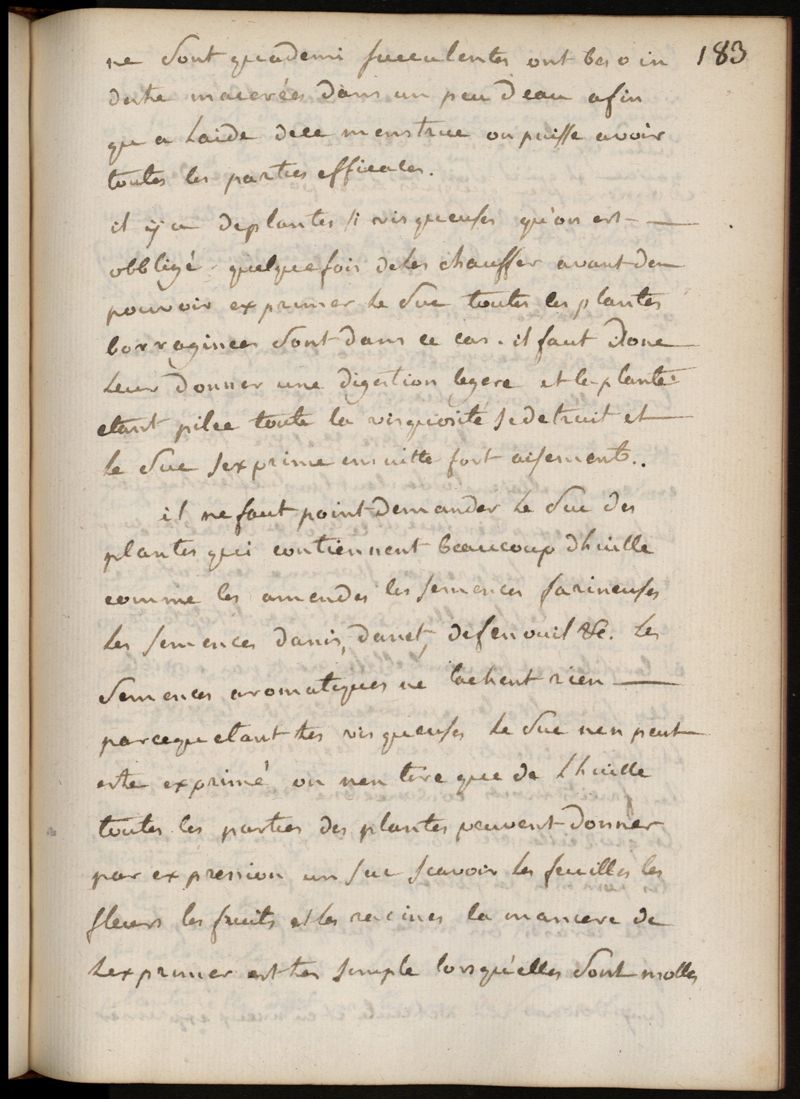 183
ne sont quademi succulentes ont besoin
destre macerées dans un peu deau afin
qu a laide dece menstrue on puisse avoir
toutes les parties efficales.
il ÿ a deplantes si visqueuses qu'on est
obbligé quelquefois deles chauffer avant den
pouvoir exprimer le suc toutes les plantes
borraginees sont dans ce cas. il faut donc
leur donner une digestion legere et la plante
etant pilee toute la visquosité se detruit et
le suc sexprime ensuitte fort aisement..
il ne faut point demander le suc des
plantes qui contiennent beaucoup dhuille
comme les amendes les semences farineuses
les semences danis, danet, defenouil &c. les
semences aromatiques ne lachent rien
parcequetant tres visqueuses le suc nen peut
estre exprimé on nen tire que de lhuille
toutes les parties des plantes peuvent donner
par expression un suc scavoir les feuilles les
fleurs les fruits et les racines la maniere de
lexprimer est tres simple lorsquelles sont molles